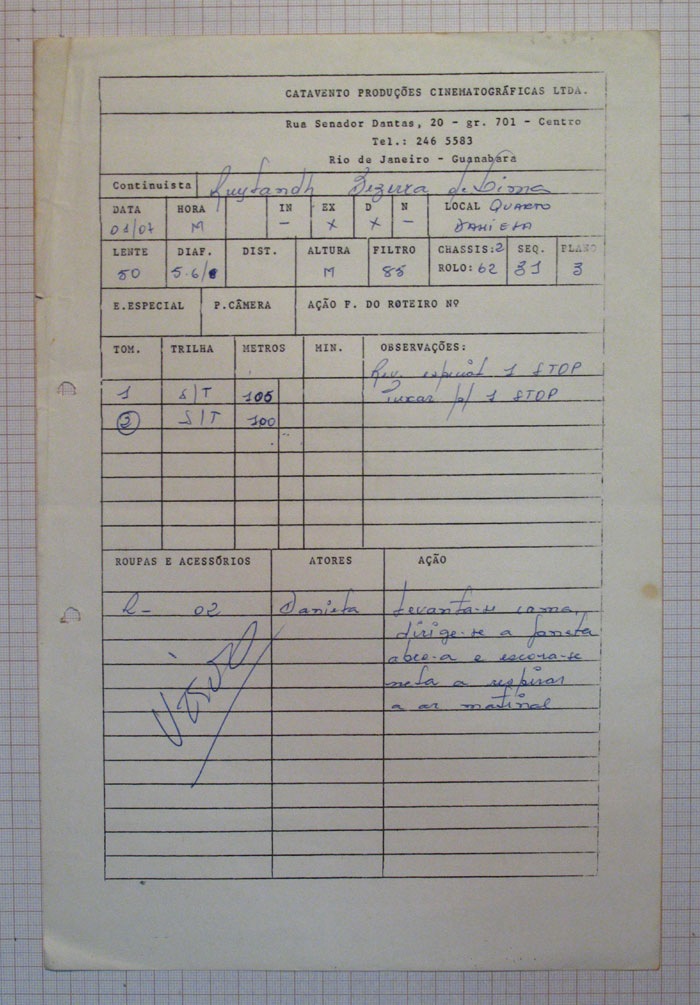 CATAVENTO PRODUÇÕES CINEMATOGRÁFICAS LTDA.
Rua Senador Dantas, 20 - gr. 701 - Centro
Tel.: 246 5583
Rio de Janeiro - Guanabara
Continuista Bezerra de Lima
DATA HORA IN EX D N LOCAL QUARTO
01/07 M - X X - DANIELA
LENTE DIAF. DIST. ALTURA FILTRO CHASSIS: 2 SEQ. PLANO
50 5.6/8 M 85 ROLO: 62 31 3
E.ESPECIAL P.CÂMERA AÇÃO P. DO ROTEIRO Nº
TOM. TRILHA METROS MIN. OBSERVAÇÕES:
Rev. especial 1 STOP
1 S/T 105 Puxar p/ 1 STOP
2 S/T 100
ROUPAS E ACESSÓRIOS ATORES AÇÃO
R- 02 Daniela Levanta-se cama,
dirige-se a janela
abre-a e escora-se
nela a respirar
a ar matinal